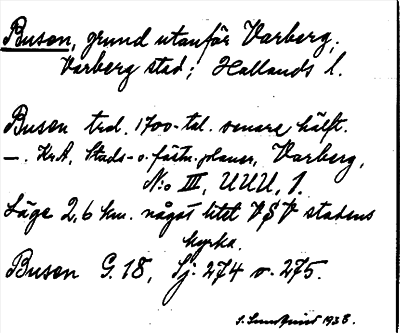 Busen, grund utanför Varberg,
Varberg stad; Hallands l.
Busen trol. 1700-tal. senare hälft.
—. KrA, Stads- o. fästn. planer, Varberg,
N:o III, UUU, 1.
Läge 2,6 km. något litet VSV stadens
kyrka.
Busen G. 18, Sj: 274 o. 275.
1938.